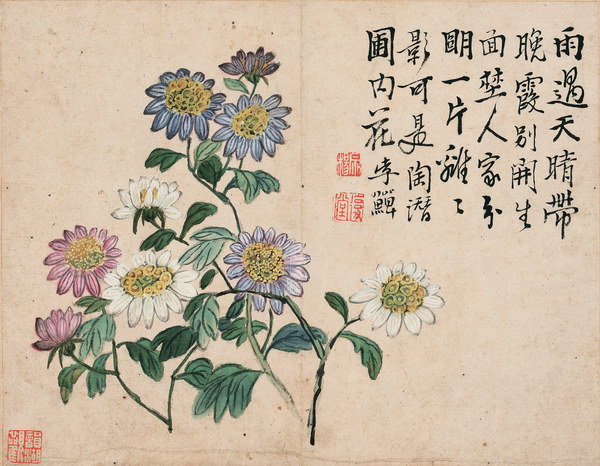 雨過天晴帶
晚霞別開生
面埜人家分
眀一片離〻
影可是陶潛
圃内花 李鱓